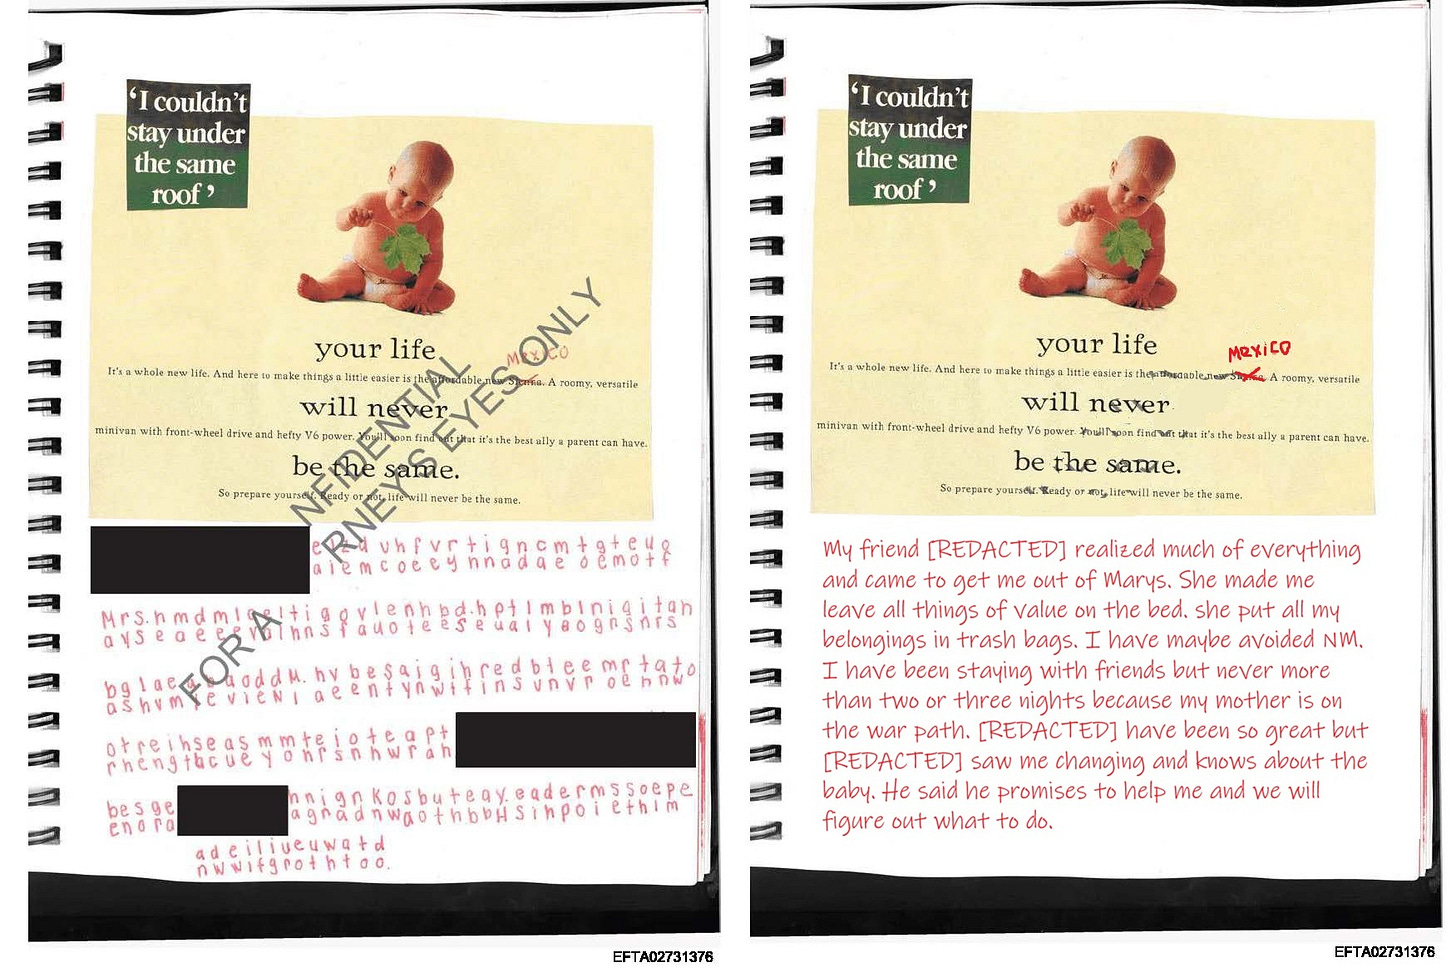 ‘I couldn’t
stay under
the same
roof’
your life
MEXICO
It's a whole new life. And here to make things a little easier is the affordable new Sienna. A roomy, versatile
will never
minivan with front-wheel drive and hefty V6 power. You'll soon find out that it's the best ally a parent can have.
be the same.
So prepare yourself. Ready or not, life will never be the same.
NFIDENTIAL
FOR A RNEY'S EYES ONLY
e l z d u h f v r t i g n c m t g t e u o
a i e m c o e e y h n a d a e o e m o t f
M r s . h m d m l a e l t i g o v l e n h b d . h p t l m b l n i g i t a h
a y s e a e e e v a l h n s f a u o t e e s e u a l y e o g n s n r s
b g l a e a o d d M . h v b e s a i g i h r e d b t e e m r t a t o
a s h v m y e v i e N I a e e n t y n w t f i n s u n v r o e h n w o
o t r e i h s e a s m m t e i o t e a p t
r h e n g t b c u e y o h r s n h w r a h
b e s g e h n i g n K o s b u t e a y . e a d e r m s s o e p e
e n o r a a g n a d n w a o t h b b H s i h p o i e t h l m
a d e i l i u e u w a t d
n w w i f g r o t h t o o .
EFTA02731376
‘I couldn’t
stay under
the same
roof’
your life
MEXICO
It's a whole new life. And here to make things a little easier is the affordable new Sienna. A roomy, versatile
will never
minivan with front-wheel drive and hefty V6 power. You'll soon find out that it's the best ally a parent can have.
be the same.
So prepare yourself. Ready or not, life will never be the same.
My friend [REDACTED] realized much of everything
and came to get me out of Marys. She made me
leave all things of value on the bed. she put all my
belongings in trash bags. I have maybe avoided NM.
I have been staying with friends but never more
than two or three nights because my mother is on
the war path. [REDACTED] have been so great but
[REDACTED] saw me changing and knows about the
baby. He said he promises to help me and we will
figure out what to do.
EFTA02731376